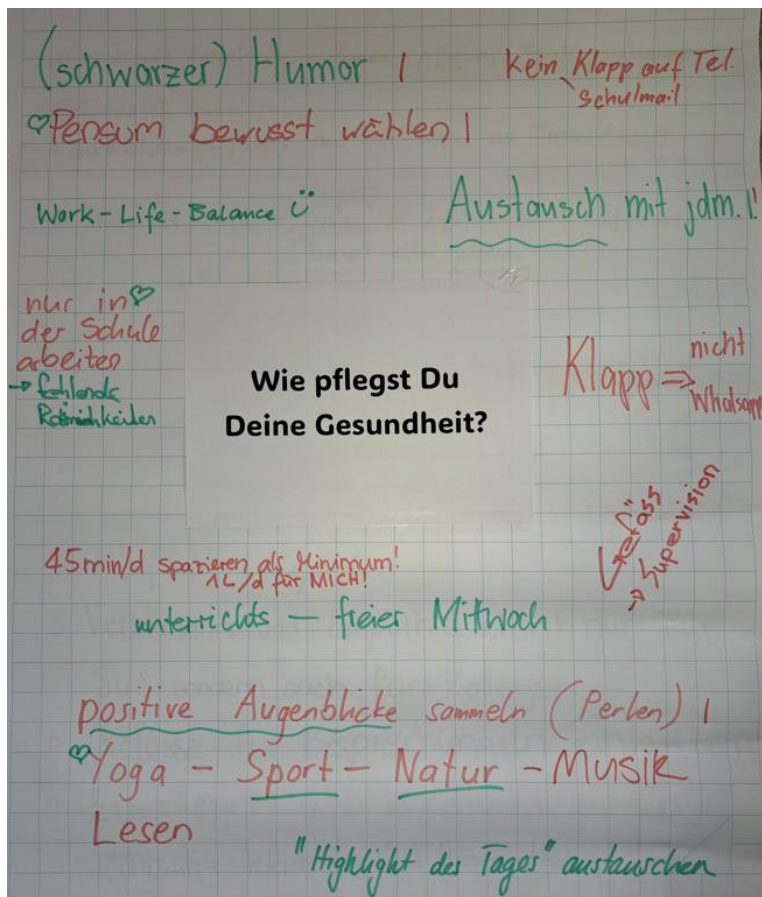 (schwarzer) Humor |
kein Klapp auf Tel.
Schulmail
♡ Pensum bewusst wählen |
Work-Life-Balance ü
Austausch mit jdm. !
nur in ♡
der Schule
arbeiten
→ fehlende
Räumlichkeiten
Wie pflegst Du
Deine Gesundheit?
Klapp ⇒ nicht
Whatsapp
Gefäss
→ Supervision
45min/d spazieren als Minimum!
1L/d für MICH!
unterrichts – freier Mittwoch
positive Augenblicke sammeln (Perlen) |
♡ Yoga – Sport – Natur – Musik
Lesen
"Highlight des Tages" austauschen